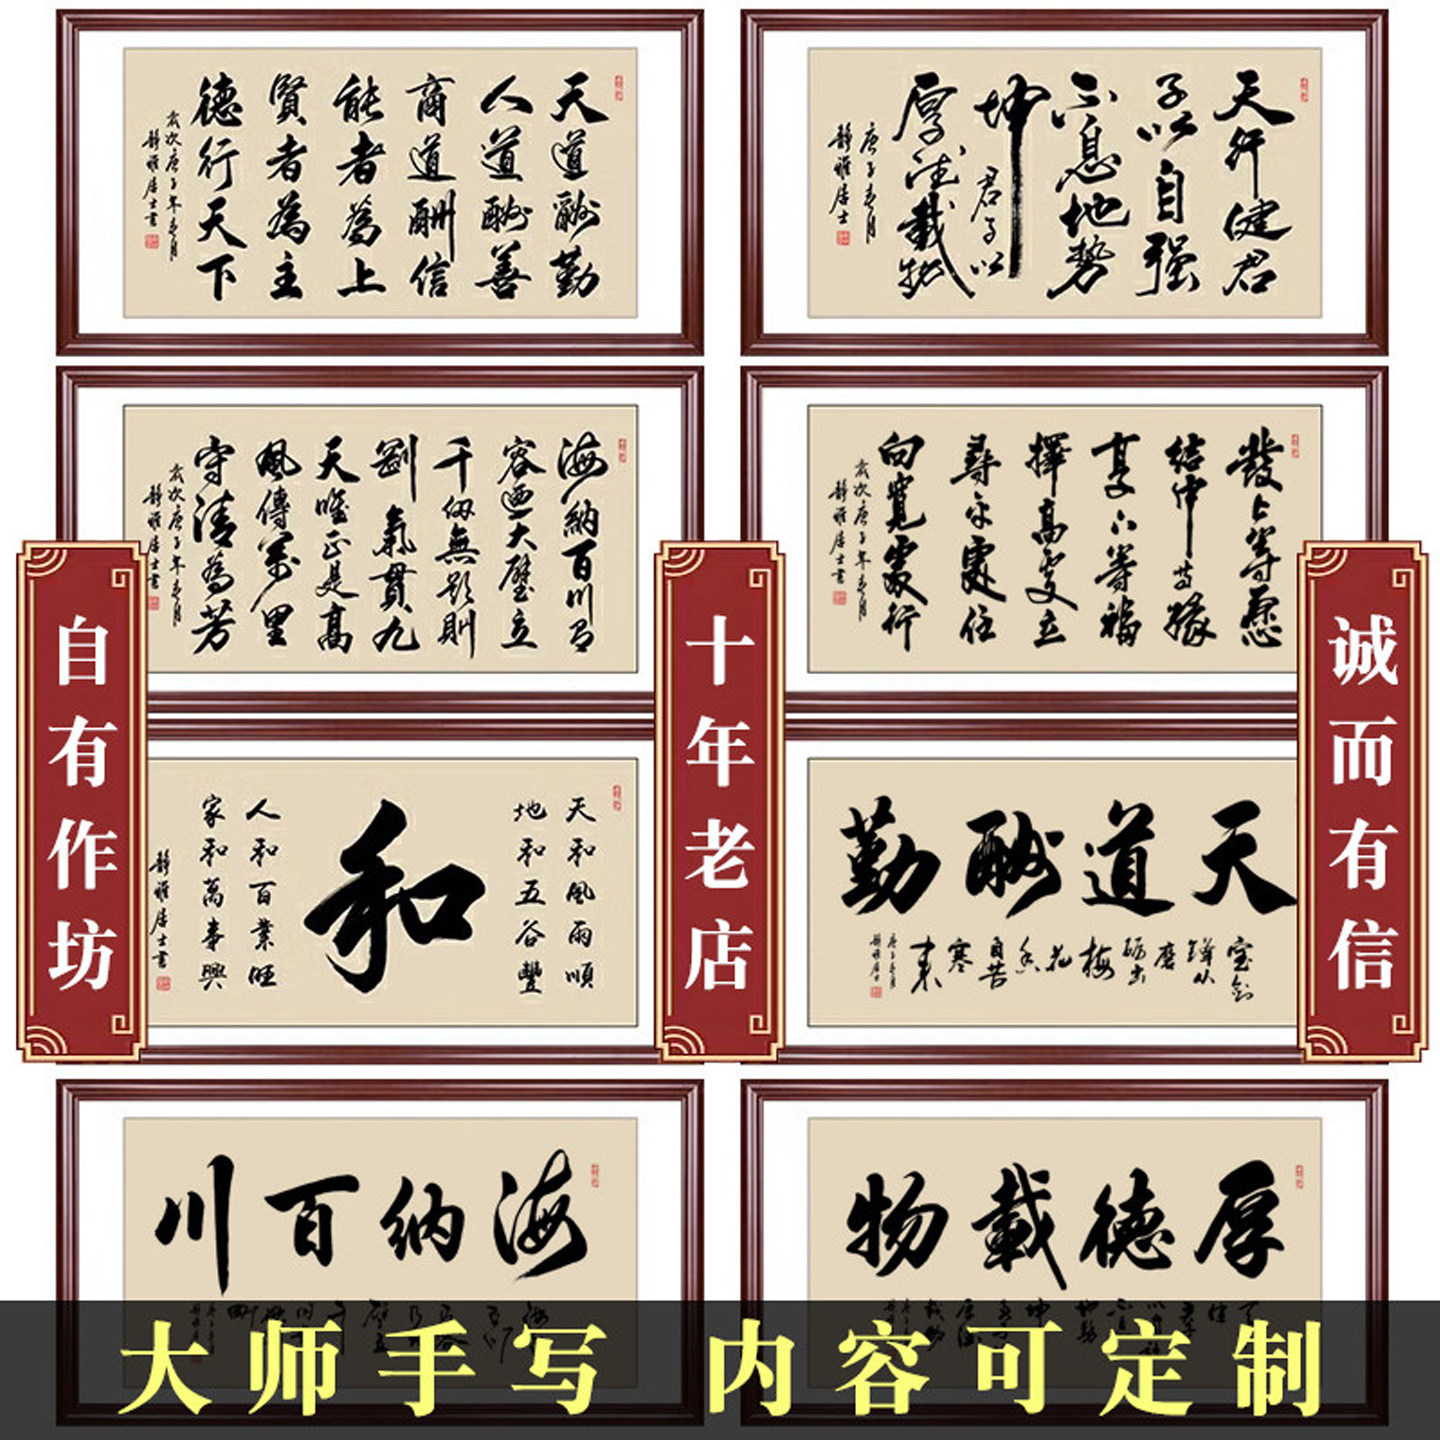 天道酬勤
人道酬善
商道酬信
能者為上
賢者為主
德行天下
歲次庚子年春月
靜雅居士書
天行健君
子以自强
不息地势
坤君子以
厚德載物
庚子春月
靜雅居士
海納百川有
容迺大壁立
千仞無欲則
剛氣貫九
天唯正是高
風傳萬里
守清為芳
歲次庚子年春月
靜雅居士書
發上等愿
結中等緣
享下等福
擇高處立
尋平處住
向寬處行
歲次庚子年春月
靜雅居士書
自有作坊
十年老店
诚而有信
天和風雨順
地和五谷豐
和
人和百業旺
家和萬事興
靜雅居士書
天道酬勤
宝剑锋从磨砺出梅花香自苦寒来
庚子春月
靜雅居士
海納百川
厚德載物
大师手写 内容可定制